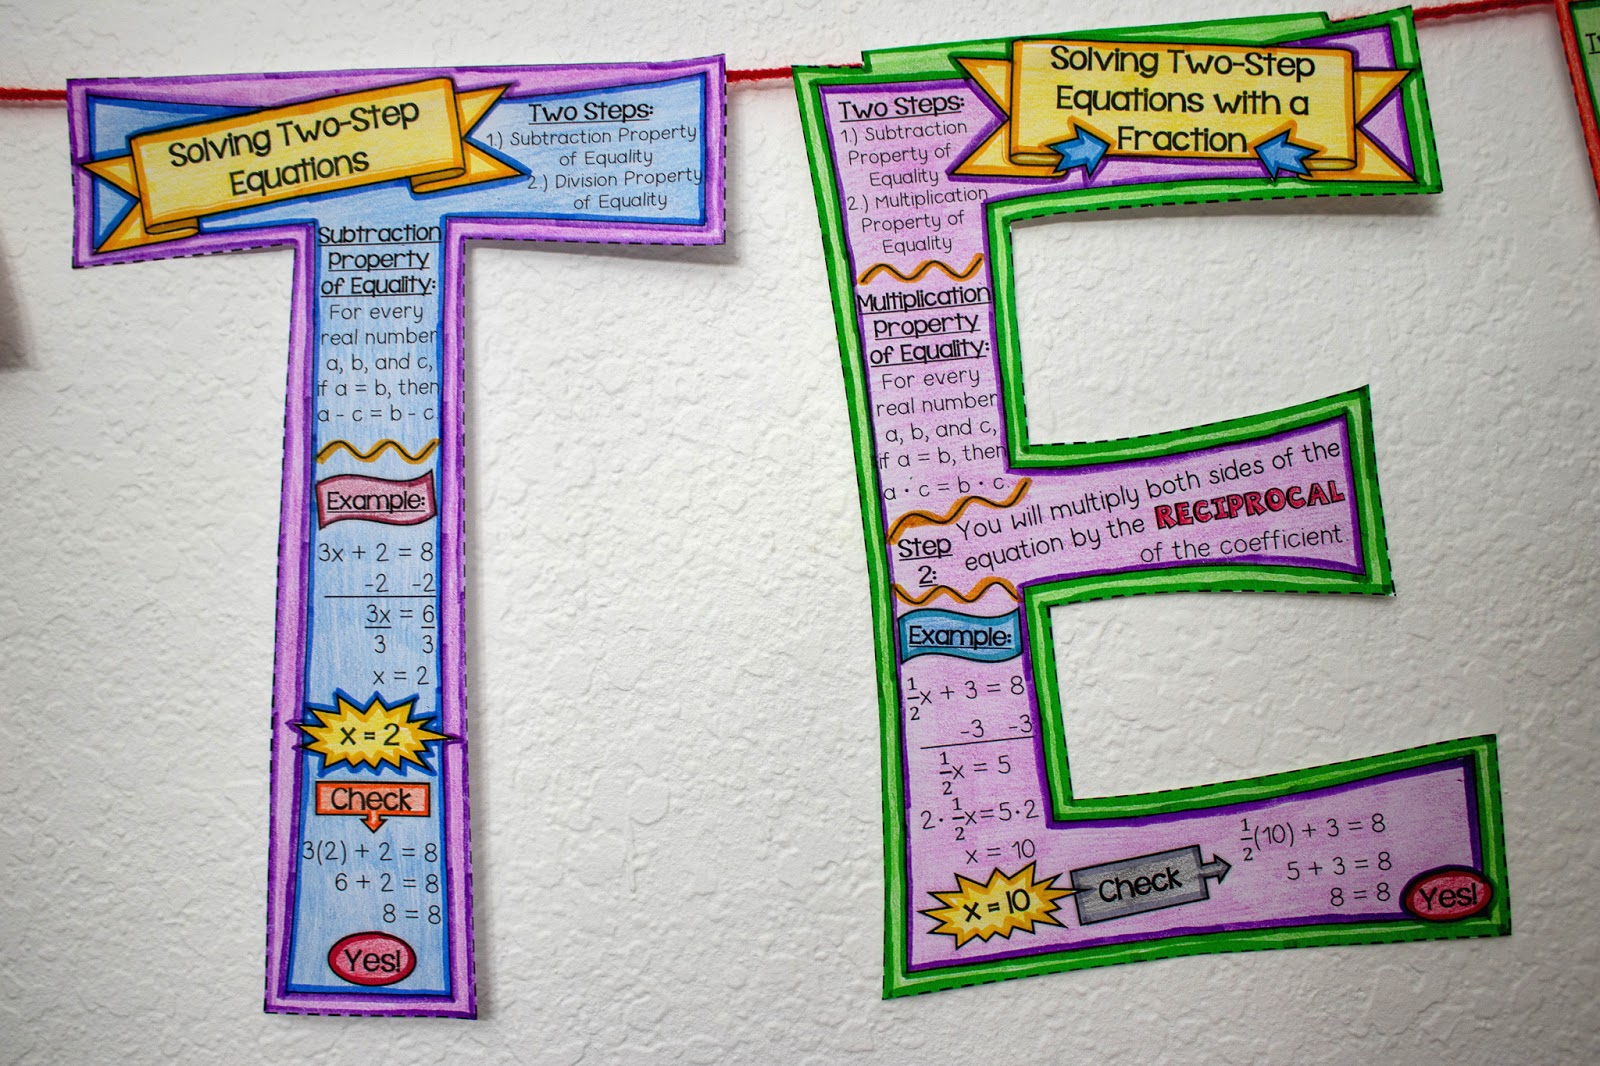 Solving Two-Step
Equations
Two Steps:
1.) Subtraction Property
of Equality
2.) Division Property
of Equality
Subtraction
Property
of Equality:
For every
real number
a, b, and c,
if a = b, then
a - c = b - c.
Example:
3x + 2 = 8
-2 -2
3x = 6
3 3
x = 2
x = 2
Check
3(2) + 2 = 8
6 + 2 = 8
8 = 8
Yes!
Solving Two-Step
Equations with a
Fraction
Two Steps:
1.) Subtraction
Property of
Equality
2.) Multiplication
Property of
Equality
Multiplication
Property
of Equality:
For every
real number
a, b, and c,
if a = b, then
a · c = b · c.
Step
2:
You will multiply both sides of the
equation by the RECIPROCAL
of the coefficient.
Example:
1/2x + 3 = 8
-3 -3
1/2x = 5
2· 1/2x=5·2
x = 10
x = 10
Check
1/2(10) + 3 = 8
5 + 3 = 8
8 = 8
Yes!